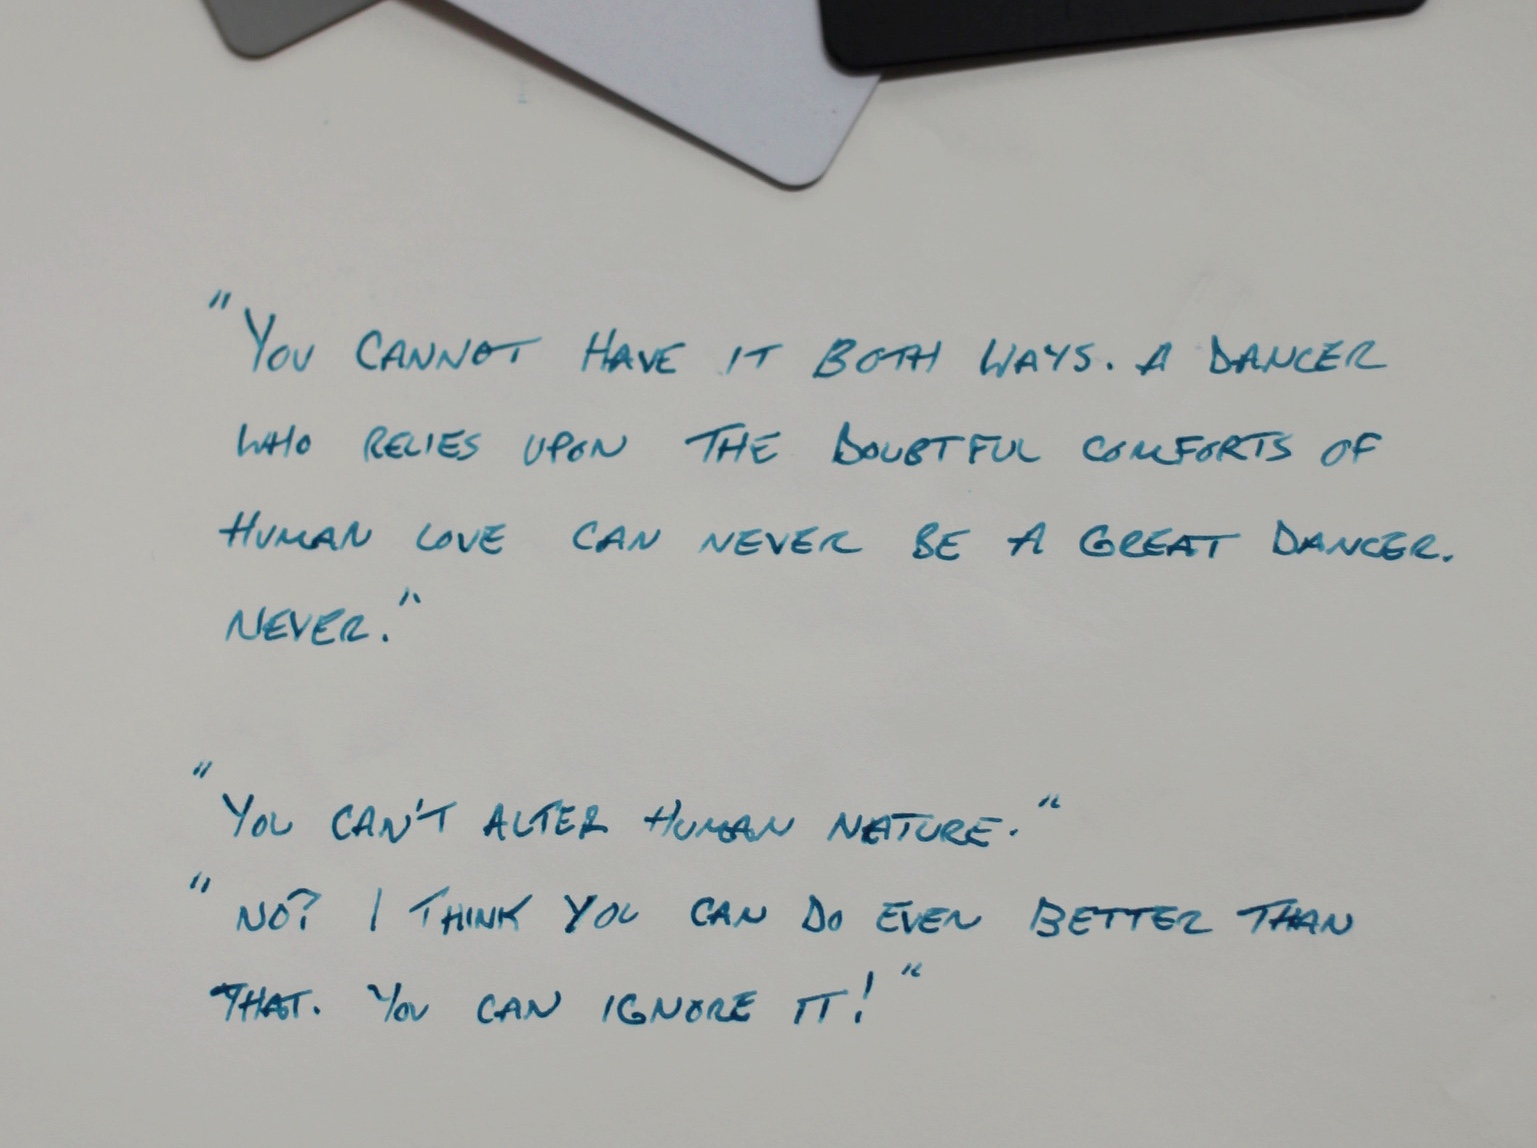 "YOU CANNOT HAVE IT BOTH WAYS. A DANCER
WHO RELIES UPON THE DOUBTFUL COMFORTS OF
HUMAN LOVE CAN NEVER BE A GREAT DANCER.
NEVER."
"YOU CAN'T ALTER HUMAN NATURE."
"NO? I THINK YOU CAN DO EVEN BETTER THAN
THAT. YOU CAN IGNORE IT!"